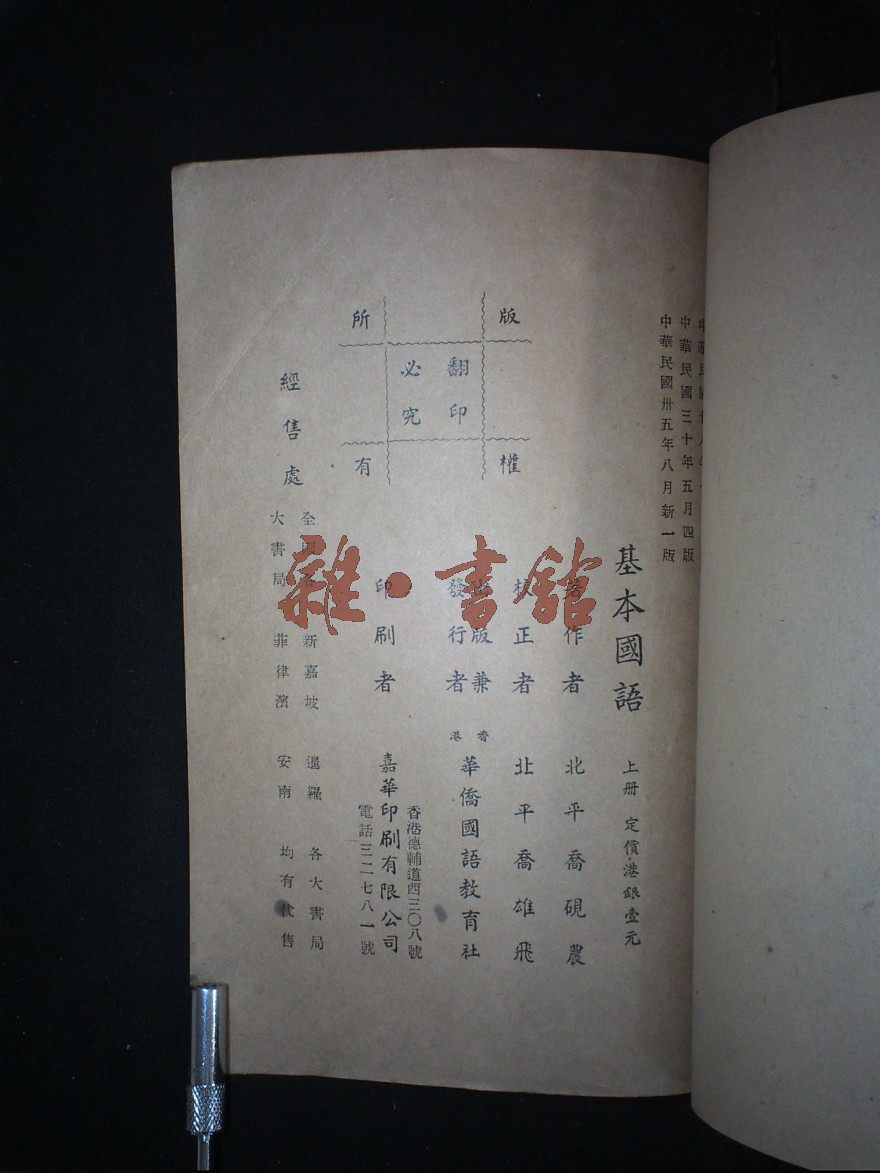 中華民國三十年五月四版
中華民國卅五年八月新一版
基本國語 上册 定價港銀壹元
著作者 北平喬硯農
校正者 北平喬雄飛
出版兼
發行者 香港 華僑國語教育社
印刷者 嘉華印刷有限公司
香港德輔道西三〇八號
電話三二七八一號
版權所有
翻印必究
經售處
全國各 新嘉坡 暹羅 各大書局
大書局 菲律濱 安南 均有代售
雜·書館